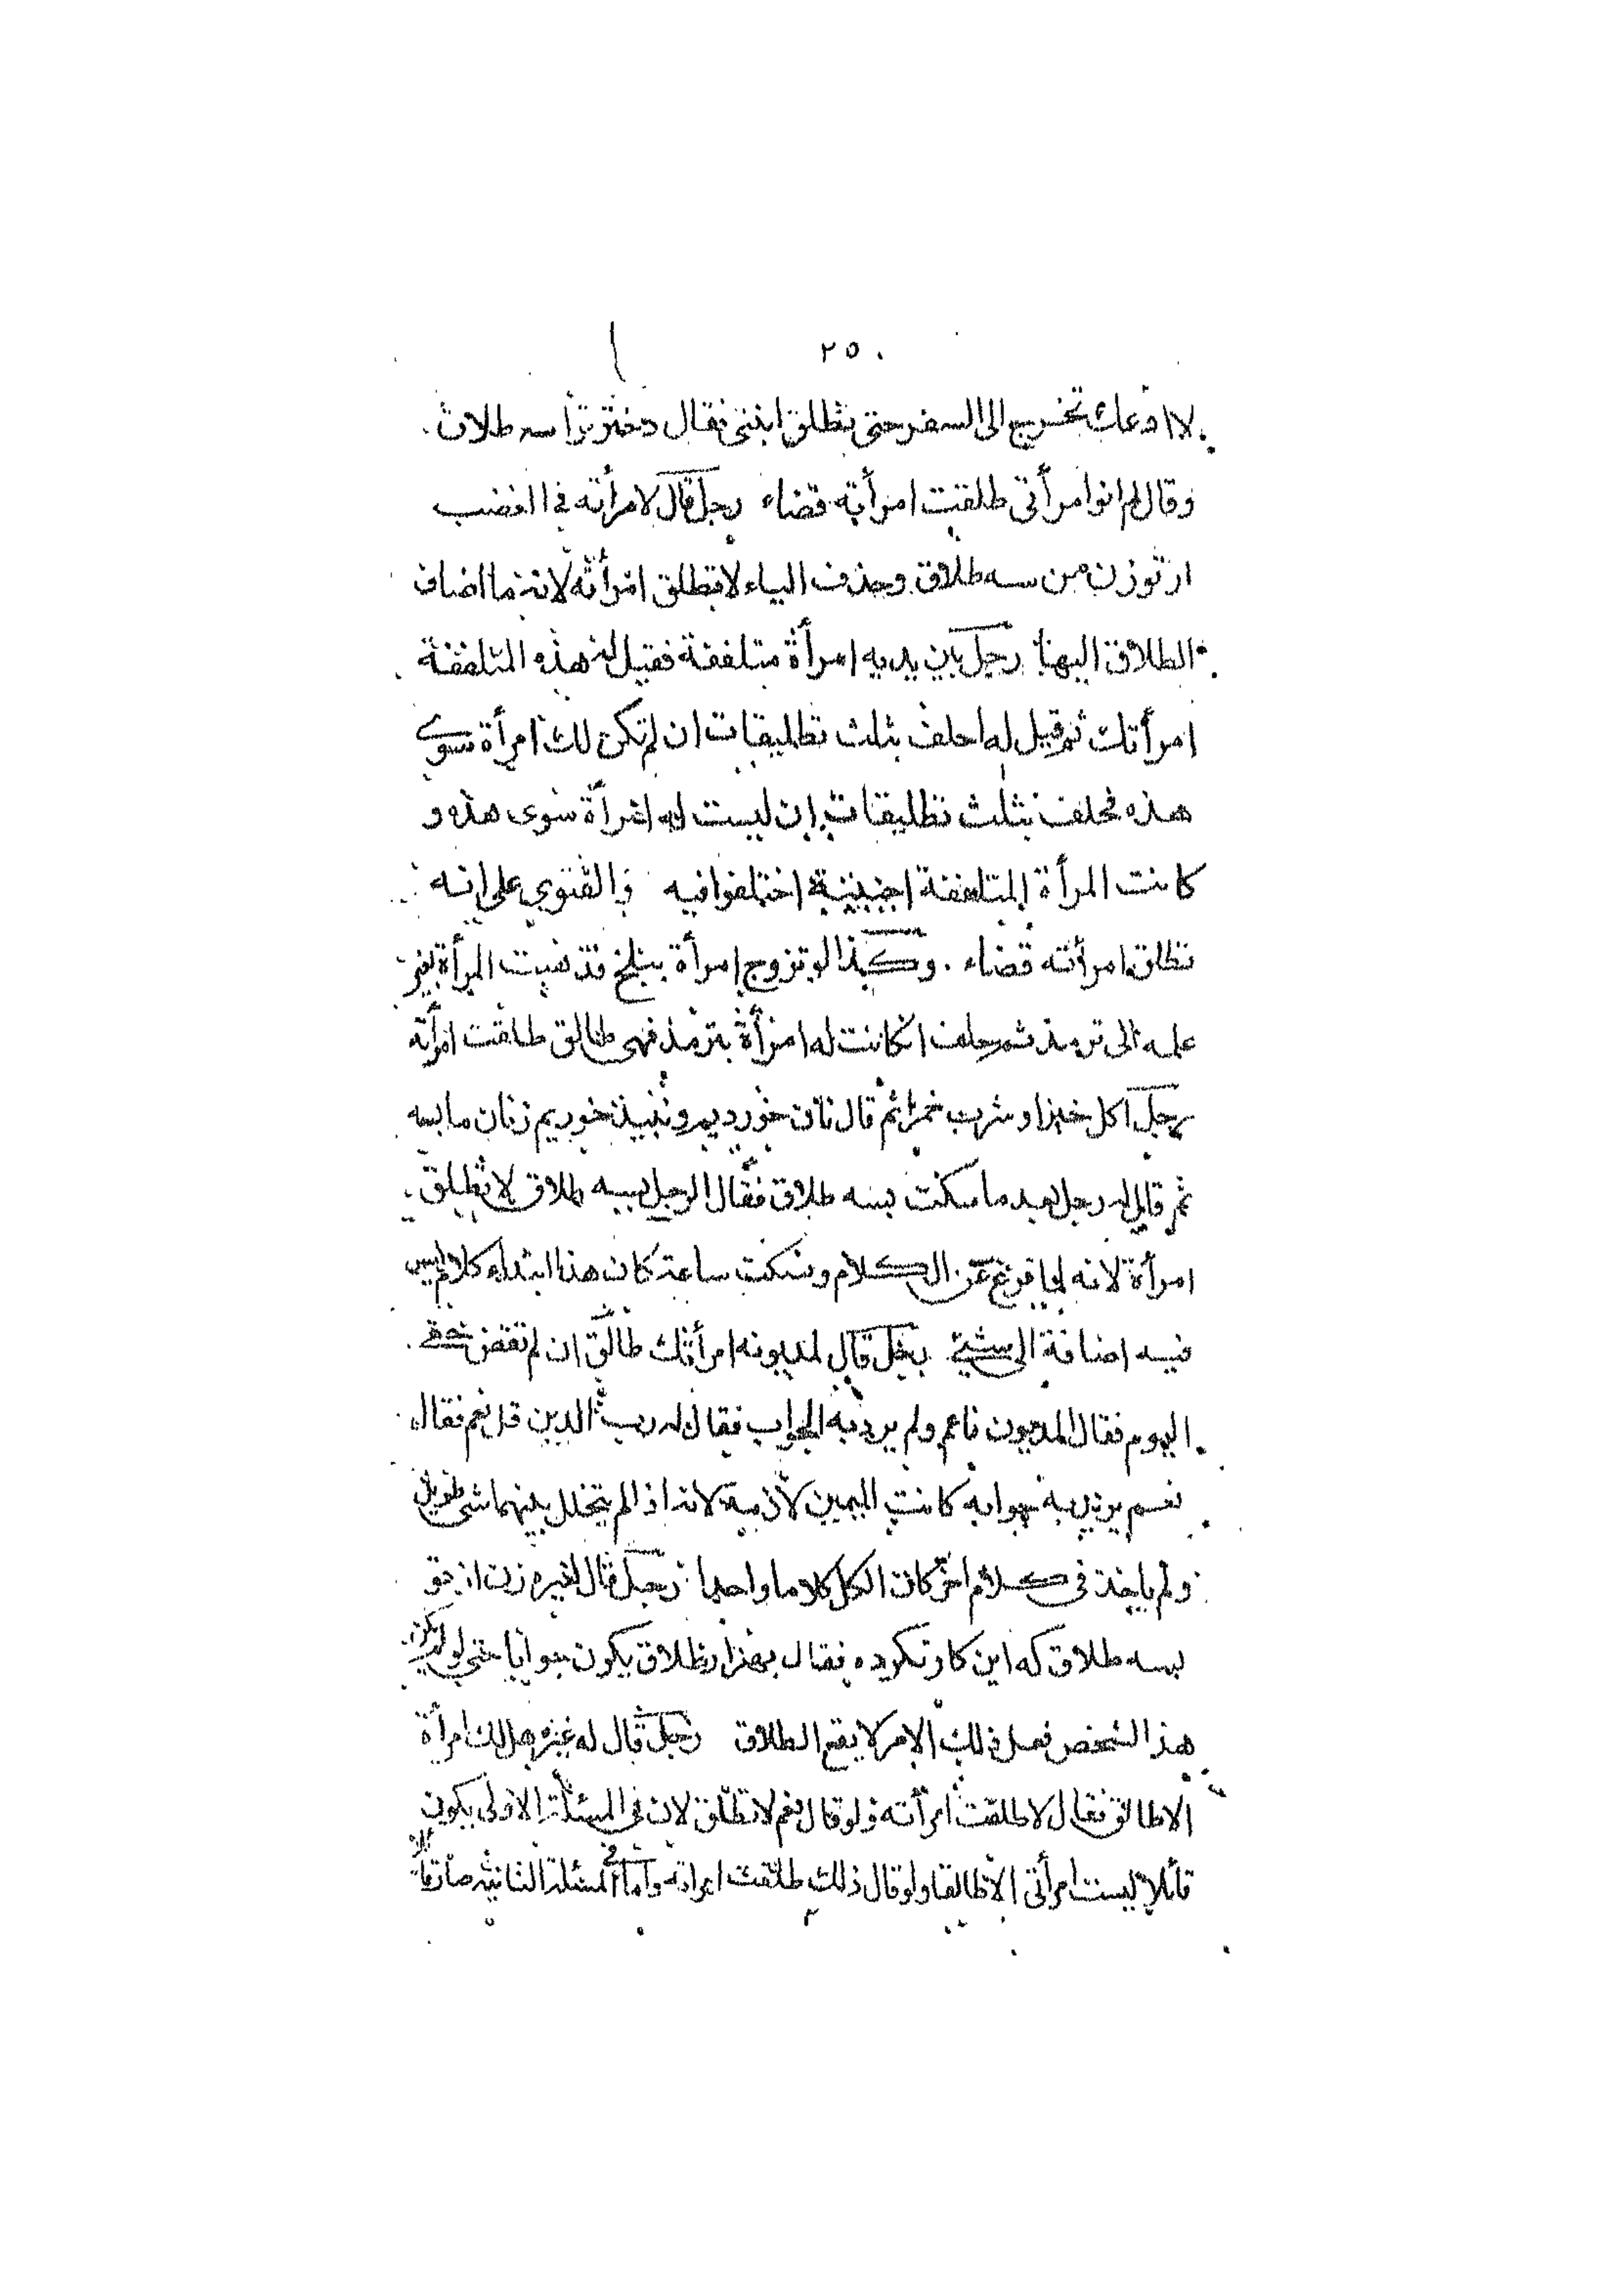 ٢٥٠
لا ادعك تخرج الى السفر حتى تطلق ابنتى فقال دختر ترا سه طلاق
وقال لم انو امرأتى طلقت امرأته قضاء رجل قال لامرأته في الغضب
ار توزن من سه طلاق وحذف الياء لا تطلق امرأته لانه ما اضاف
الطلاق اليها رجل بين يديه امرأة متلففة فقيل له هذه المتلففة
امرأتك ثم قيل له احلف بثلث تطليقات ان لم تكن لك امرأة سوى
هذه فحلف بثلث تطليقات ان ليست له امرأة سوى هذه و
كانت المرأة المتلففة اجنبية اختلفوا فيه والفتوى على انه
تطلق امرأته قضاء وكذا لو تزوج امرأة ببلخ فذهبت المرأة بغير
علمه الى ترمذ ثم حلف ان كانت له امرأة بترمذ فهى طالق طلقت امرأته
رجل اكل خبزا وشرب خمرا ثم قال نان خورديم ونبيذ خورديم زنان ما بسه
ثم قال له رجل بعد ما سكت بسه طلاق فقال الرجل بسه طلاق لا تطلق
امرأة لانه لما فرغ عن الكلام وسكت ساعة كان هذا ابتداء كلام ليس
فيه اضافة الى شئ رجل قال لمديونه امرأتك طالق ان لم تقض حقى
اليوم فقال المديون ناعم ولم يرد به الجواب فقال له رب الدين قل نعم فقال
نعم يريد به جوابه كانت اليمين لازمة لانه اذا لم يتخلل بينهما شى طويل
ولم ياخذ فى كلام اخر كان الكل كلاما واحدا رجل قال لغيره زن از تو
بسه طلاق كه اين كار نكرده فقال بهزار طلاق يكون جوابا حتى لو لم يكن
هذا الشخص فعل ذلك الامر لا يقع الطلاق رجل قال له غيره هل لك امرأة
الا طالق فقال لا طلقت امرأته ولو قال نعم لا تطلق لان فى المسئلة الاولى يكون
قائلا ليست امرأتى الا طالقا ولو قال ذلك طلقت امرأته واما فى المسئلة الثانية صار قائلا